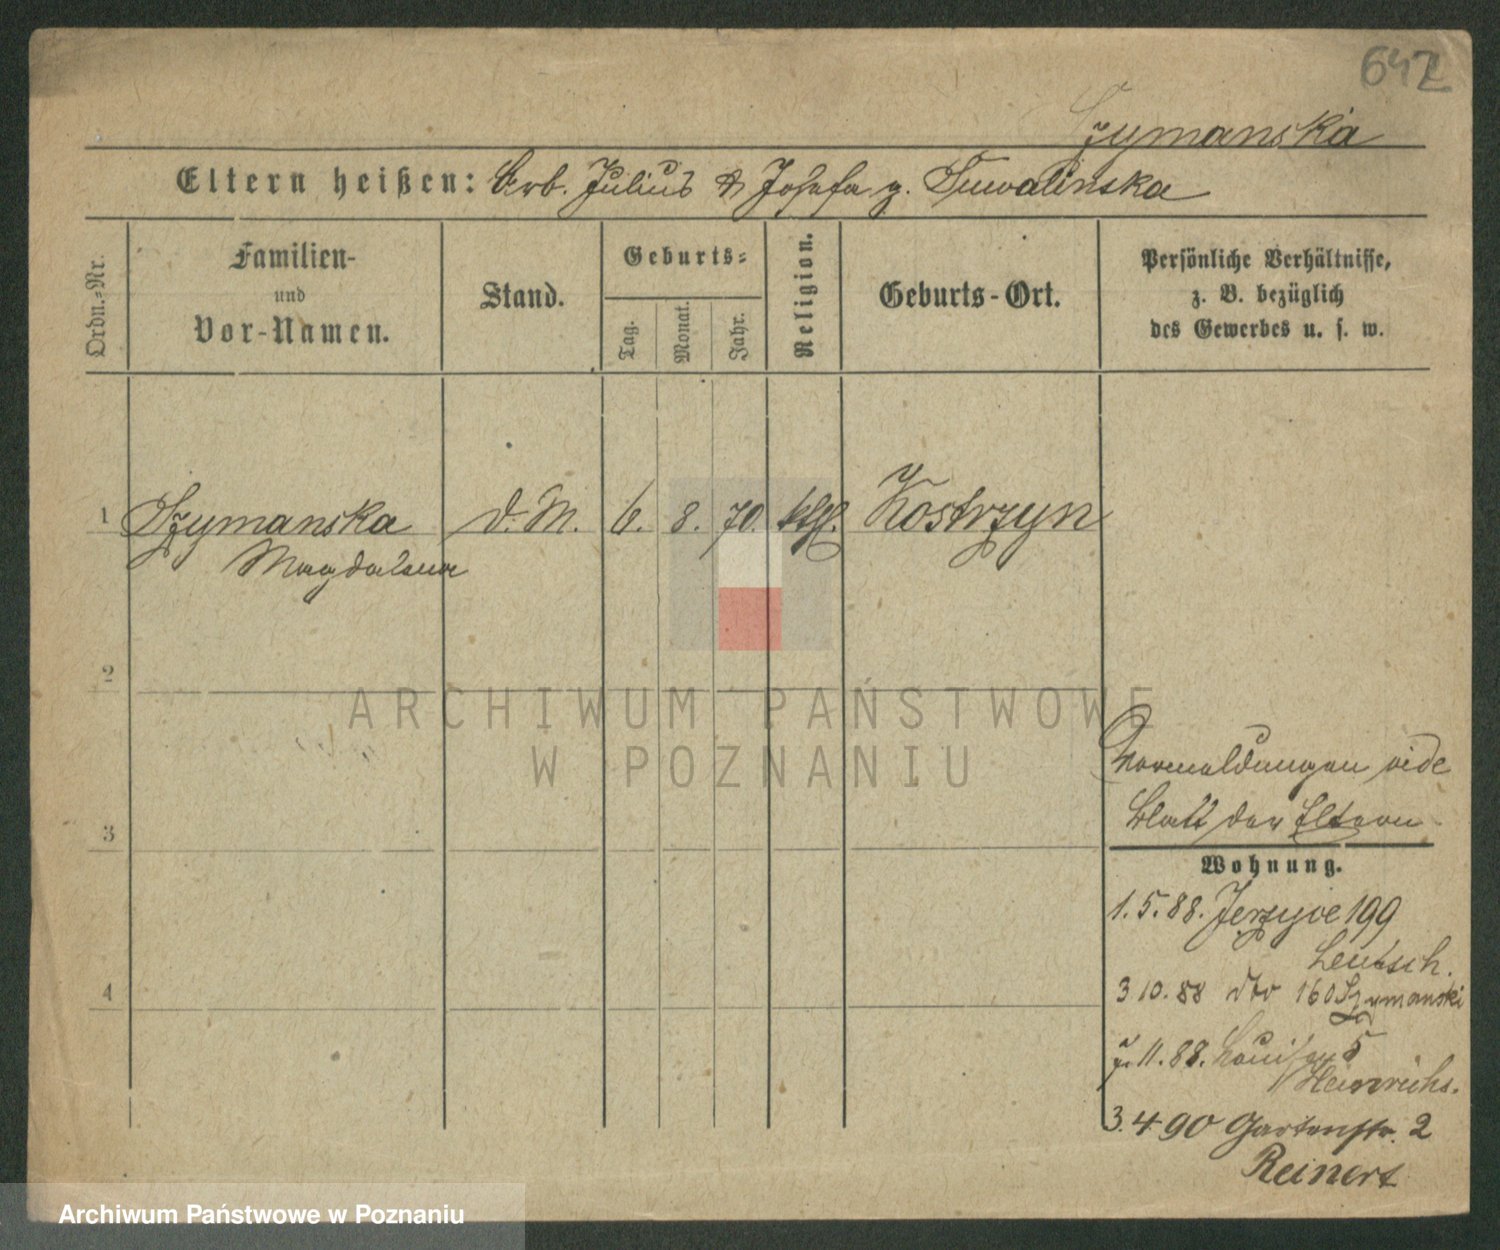 642
Szymanska
Eltern heißen: Arb. Julius & Josefa g. Suwalinska
Ordn.-Nr.
Familien-
und
Vor-Namen.
Stand.
Geburts-
Tag.
Monat.
Jahr.
Religion.
Geburts-Ort.
Persönliche Verhältnisse,
z. B. bezüglich
des Gewerbes u. s. w.
1 Szymanska d. M. 6. 8. 70. kthl. Kostrzyn
Magdalena
2
ARCHIWUM PAŃSTWOWE
W POZNANIU
Vormeldungen vide
Blatt der Eltern
3
Wohnung.
1. 5. 88. Jerzyce 199
Leutsch.
4
3 10. 88 dto 160 Szymanski
7. 11. 88. Louisen 5
Heinrichs.
3. 4 90 Gartenstr. 2
Reinert
Archiwum Państwowe w Poznaniu